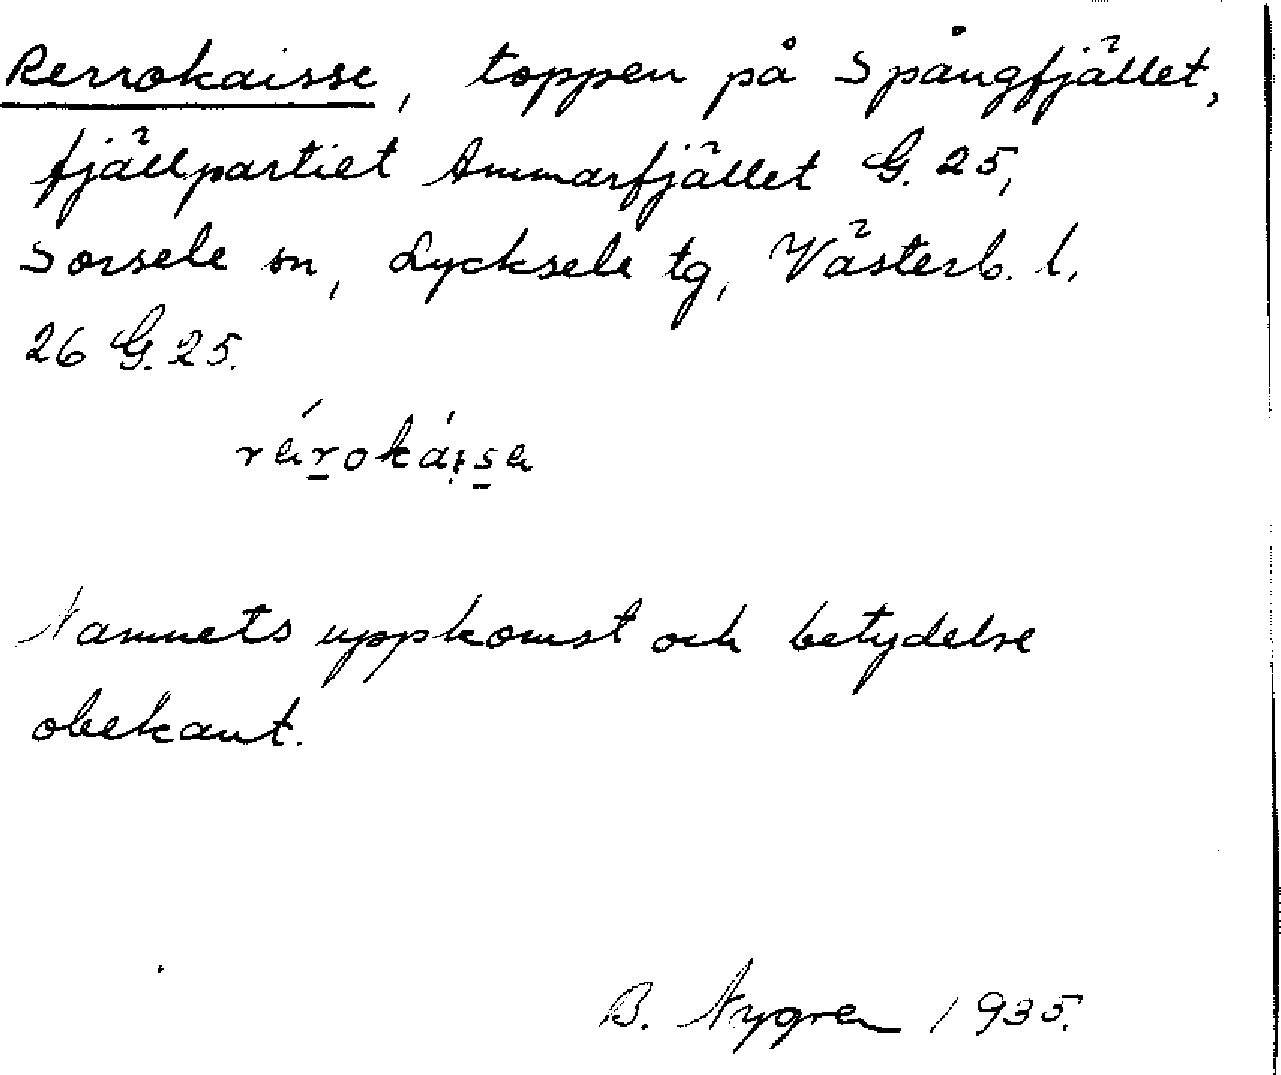 Rerrokaisse, toppen på Spångfjället,
fjällpartiet Ammarfjället G. 25,
Sorsele sn, Lycksele tg, Västerb. l.
26 G. 25.
rérokáisa
Namnets uppkomst och betydelse
obekant.
B. Nygren 1935.